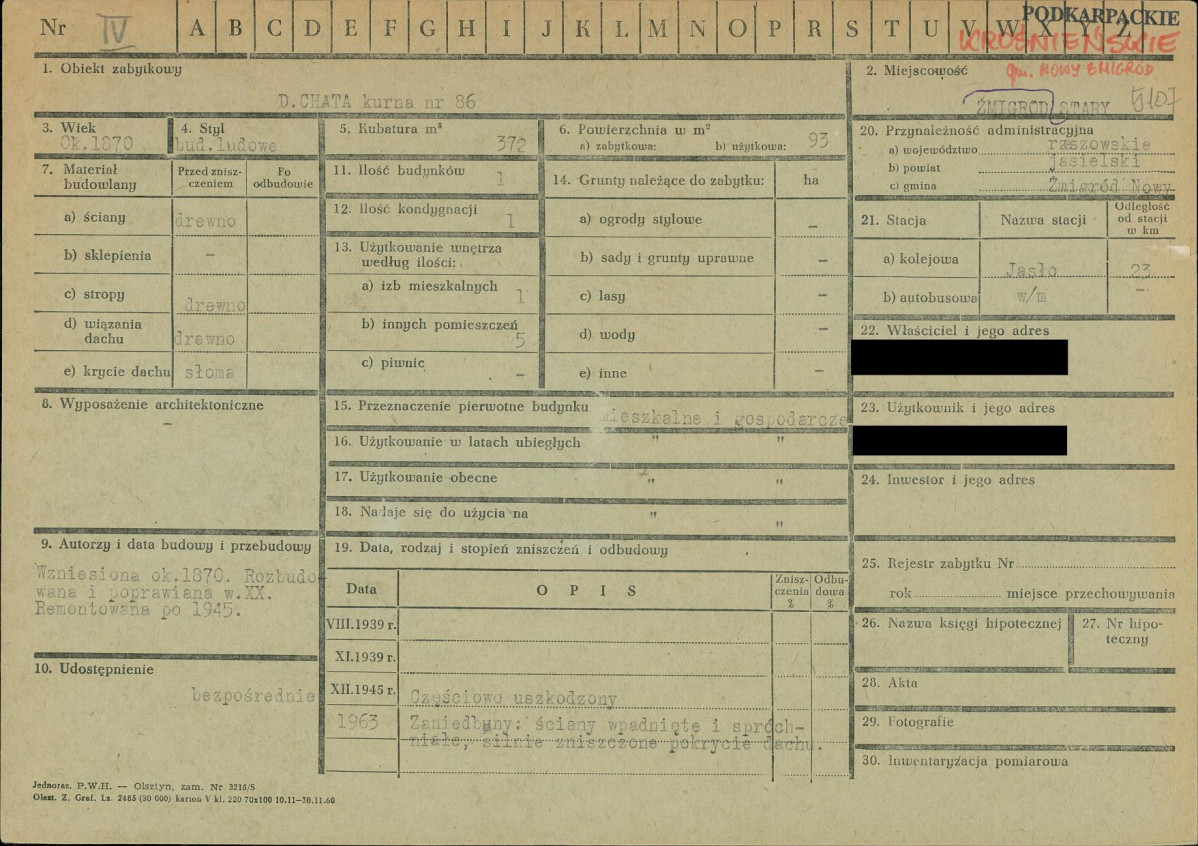 Nr IV A B C D E F G H I J K L M N O P R S T U V W X Y Z
PODKARPACKIE
KROŚNIEŃSKIE
gm. NOWY ŻMIGRÓD
1. Obiekt zabytkowy
D.CHATA kurna nr 86
2. Miejscowość
ŻMIGRÓD STARY
5107
3. Wiek
Ok.1870
4. Styl
bud.ludowe
5. Kubatura m³
372
6. Powierzchnia w m²
a) zabytkowa: b) użytkowa: 93
7. Materiał budowlany
Przed znisz-
czeniem
Po
odbudowie
a) ściany drewno
b) sklepienia –
c) stropy drewno
d) wiązania
dachu drewno
e) krycie dachu słoma
8. Wyposażenie architektoniczne
–
9. Autorzy i data budowy i przebudowy
Wzniesiona ok.1870. Rozbudo-
wana i poprawiana w.XX.
Remontowana po 1945.
10. Udostępnienie
bezpośrednie
11. Ilość budynków 1
12. Ilość kondygnacji 1
13. Użytkowanie wnętrza
według ilości:
a) izb mieszkalnych 1
b) innych pomieszczeń 5
c) piwnic –
14. Grunty należące do zabytku: ha
a) ogrody stylowe –
b) sady i grunty uprawne –
c) lasy –
d) wody –
e) inne –
15. Przeznaczenie pierwotne budynku mieszkalne i gospodarcze
16. Użytkowanie w latach ubiegłych " "
17. Użytkowanie obecne " "
18. Nadaje się do użycia na " "
19. Data, rodzaj i stopień zniszczeń i odbudowy
Data O P I S Znisz-
czenia
% Odbu-
dowa
%
VIII.1939 r.
XI.1939 r.
XII.1945 r. Częściowo uszkodzony
1963 Zaniedbany: ściany wpadnięte i spróch-
niałe, silnie zniszczone pokrycie dachu.
20. Przynależność administracyjna
a) województwo rzeszowskie
b) powiat jasielski
c) gmina Żmigród Nowy
21. Stacja Nazwa stacji Odległość
od stacji
w km
a) kolejowa Jasło 23
b) autobusowa w/m –
22. Właściciel i jego adres
23. Użytkownik i jego adres
24. Inwestor i jego adres
25. Rejestr zabytku Nr
rok miejsce przechowywania
26. Nazwa księgi hipotecznej
27. Nr hipo-
teczny
28. Akta
29. Fotografie
30. Inwentaryzacja pomiarowa
Jednoraz. P.W.H. — Olsztyn, zam. Nr 3215/S
Olszt. Z. Graf. Lz. 2485 (30 000) karton V kl. 220 70x100 10.11—30.11.60